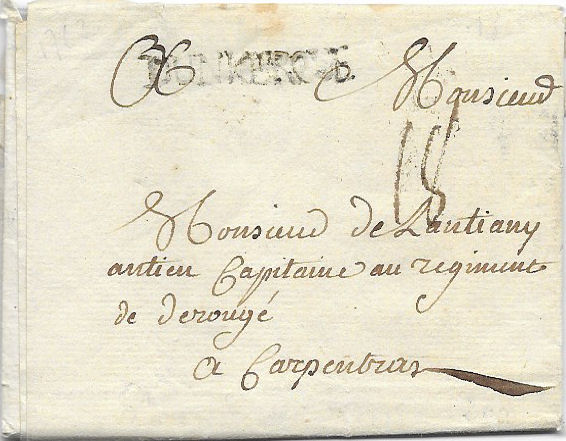 DUNKERQUE
Monsieur
18
Monsieur de Lantiany
antien Capitaine au regiment
de derougé
a Carpentras